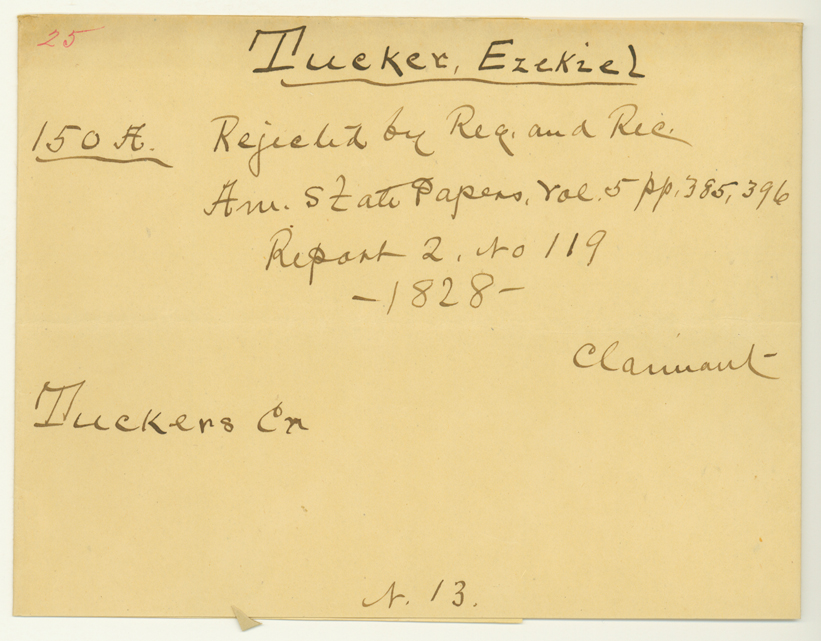 25
Tucker, Ezekiel
150 A. Rejected by Reg. and Rec.
Am. State Papers, Vol. 5 pp. 385, 396
Report 2, No 119
-1828-
Claimant
Tuckers Cr
N. 13.